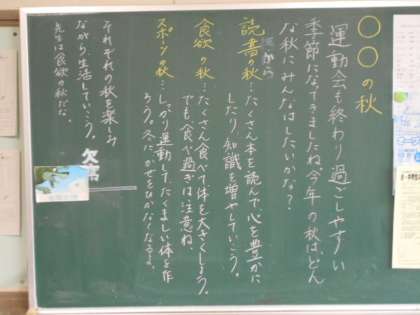 ○○の秋
運動会も終わり過ごしやすい
季節になってきましたね今年の秋は、どん
な秋にみんなはしたいかな？
読書の秋…たくさん本を読んで心を豊かに
したり、知識を増やしていこう。
食欲の秋…たくさん食べて体を大きくしよう。
でも、食べ過ぎは注意ね。
スポーツの秋…しっかり運動して、たくましい体を作
ろう。冬に、かぜをひかなくなるよ。
それぞれの秋を楽しみ
ながら、生活していこう。
先生は食欲の秋だな。
欠席